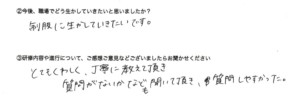 ②今後、職場でどう生かしていきたいと思いましたか?
制服に生かしていきたいです。
③研修内容や進行について、ご感想ご意見などございましたらお聞かせください
とてもくわしく、丁寧に教えて頂き
質問がないかなども聞いて頂き、質問しやすかった。